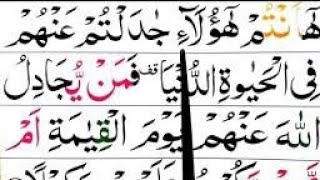 هٰۤاَنْتُمْ هٰۤؤُلَآءِ جٰدَلْتُمْ عَنْهُمْ
فِی الْحَیٰوةِ الدُّنْیَا قف فَمَنْ یُّجَادِلُ
اللّٰهَ عَنْهُمْ یَوْمَ الْقِیٰمَةِ اَمْ